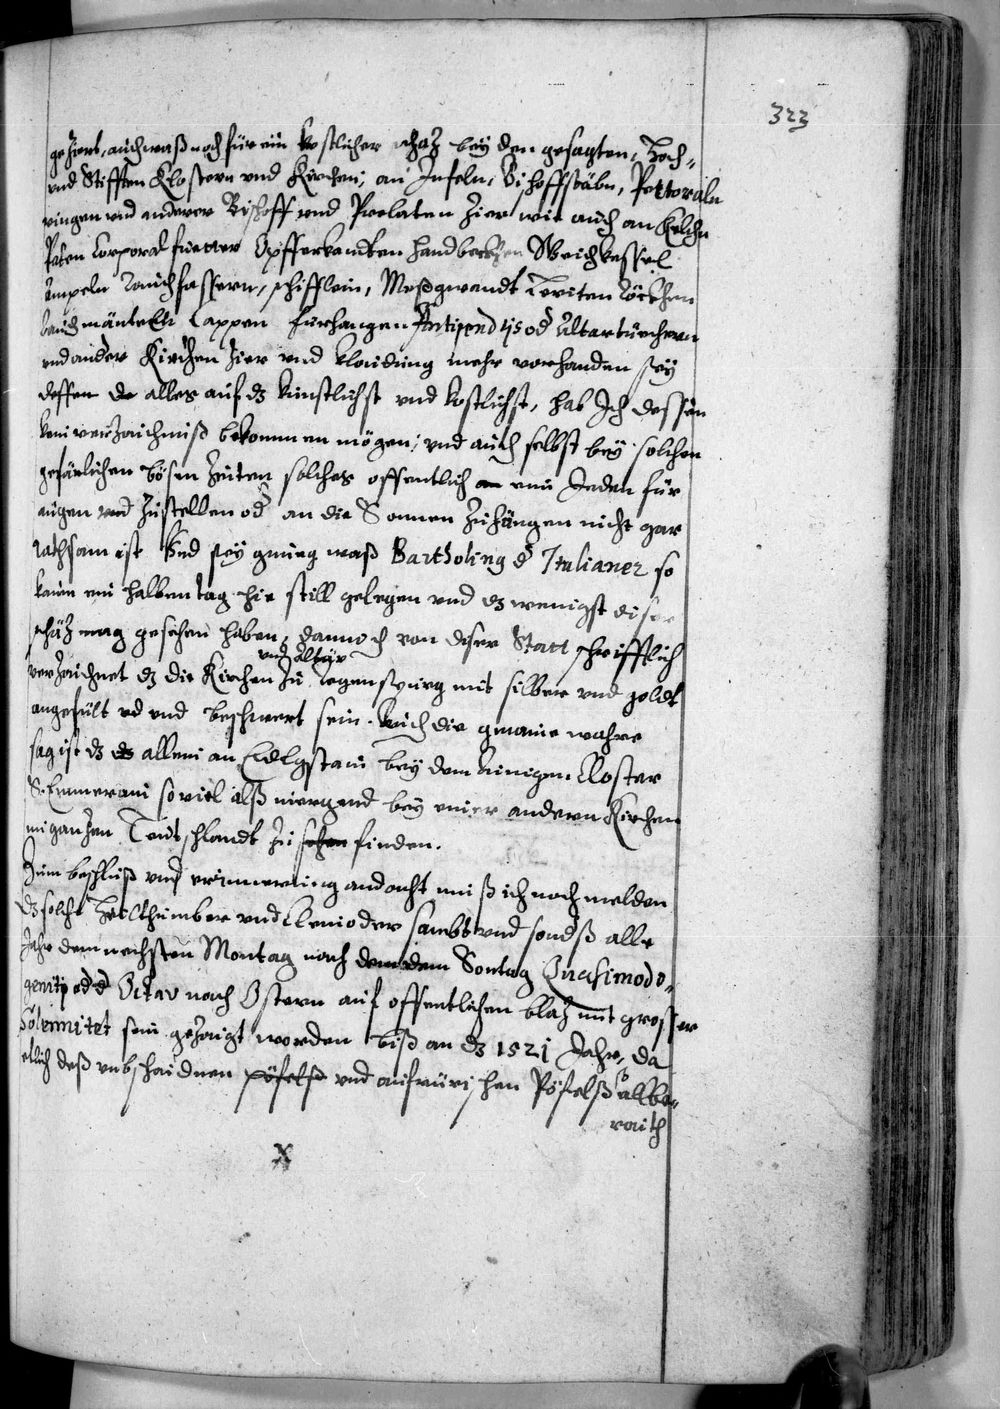 323
geziert, auch waß noch für ein kostlicher schaz bey den gesagten, Hoch-
und Stifften Klostern und Kirchen, an Infeln, Bischoffstäbn, Pettoraln
ringen und anderer Bischoff und Prelaten zier wie auch an Kelchn
Paten Corporal fuetter Opfferkandten handbeckhen Weichkessel
Ampeln Rauchfassern, schifflein, Meßgwandt Leviten Röckhen
Rauchmänteln Cappen fürhangen Antipendijs od Altartüechern
und ander Kirchen zier und Kleidung mehr vorhanden sey
dessen de alles auf dz künstlichst und kostlichst, hab Ich dessen
kein verzaichniß bekommen mögen; und auch selbst bey solchen
gefärlichen bösen Zeiten solches offentlich an eim Jeden für
augen und zustellen od an die Sonnen zuhängen nicht gar
rathsam ist Und sey gnueg waß Bartholing d Italianer so
kaum ein halben tag hie still gelegen und dz wenigst diser
schäz mag gesehen haben, dannoch von diser Statt schrifftlich
und Altär
verzaichnet dz die Kirchen zu Regenspurg mit silber und goldt
angefült ud und beschwert sein. Auch die gmaine wahre
sag ist dz dz allein an Edlgstain bey dem einigen Closter
S. Emmerani soviel alß niergend bey einer andern Kirchen
in ganzen Teutschlandt zu sehen finden.
Zum beschluß und erinnerung andacht muß ich noch melden
dz solche Heilthumber und Cleinoder sambt und sondß alle
Jahr dem nechsten Montag nach dem dem Sontag Quasimodo-
geniti od d Octav nach Ostern auf offentlichen blaz mit grosser
Solennitet sein gezaigt worden biß an dz 1521 Jahr, da
etlich deß unbschaidnen pöfelß und aufrürischen Pöfelß so allbe-
raith
X